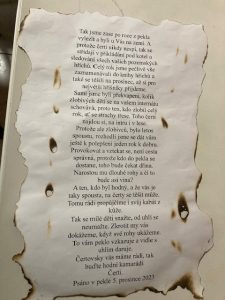 Tak jsme zase po roce z pekla
vylezli a byli u Vás na zemi. A
protože čerti nikdy nespí, tak se
střídají v přikládání pod kotel a
sledování všech vašich pozemských
hříchů. Celý rok jsme pečlivě vše
zaznamenávali do knihy hříchů a
také se těšili na prosinec, až si pro
největší hříšníky přijdeme.
Sami jsme byli překvapeni, kolik
zlobivých dětí se na vašem internátu
schovává, proto ten, kdo zlobil celý
rok, ať se strachy třese. Toho čerti
najdou si, na intru i v lese.
Protože ale zlobivců, bylo letos
spoustu, rozhodli jsme se dát vám
ještě k polepšení jeden rok k dobru.
Provokovat a vztekat se, není cesta
správná, protože kdo do pekla se
dostane, toho bude čekat dřina.
Narostou mu dlouhé rohy a či to
bude asi vina?
A ten, kdo byl hodný, a že vás je
taky spousta, na čerty se těšit může.
Tomu rádi propůjčíme i svůj kabát z
kůže.
Tak se milé děti snažte, od uhlí se
neumažte. Zkrotit my vás
dokážeme, když své rohy ukážeme.
To vám peklo vzkazuje a vidle s
uhlím daruje.
Čertovsky vás máme rádi, tak
buďte hodní kamarádi
Čerti.
Psáno v pekle 5. prosince 2023